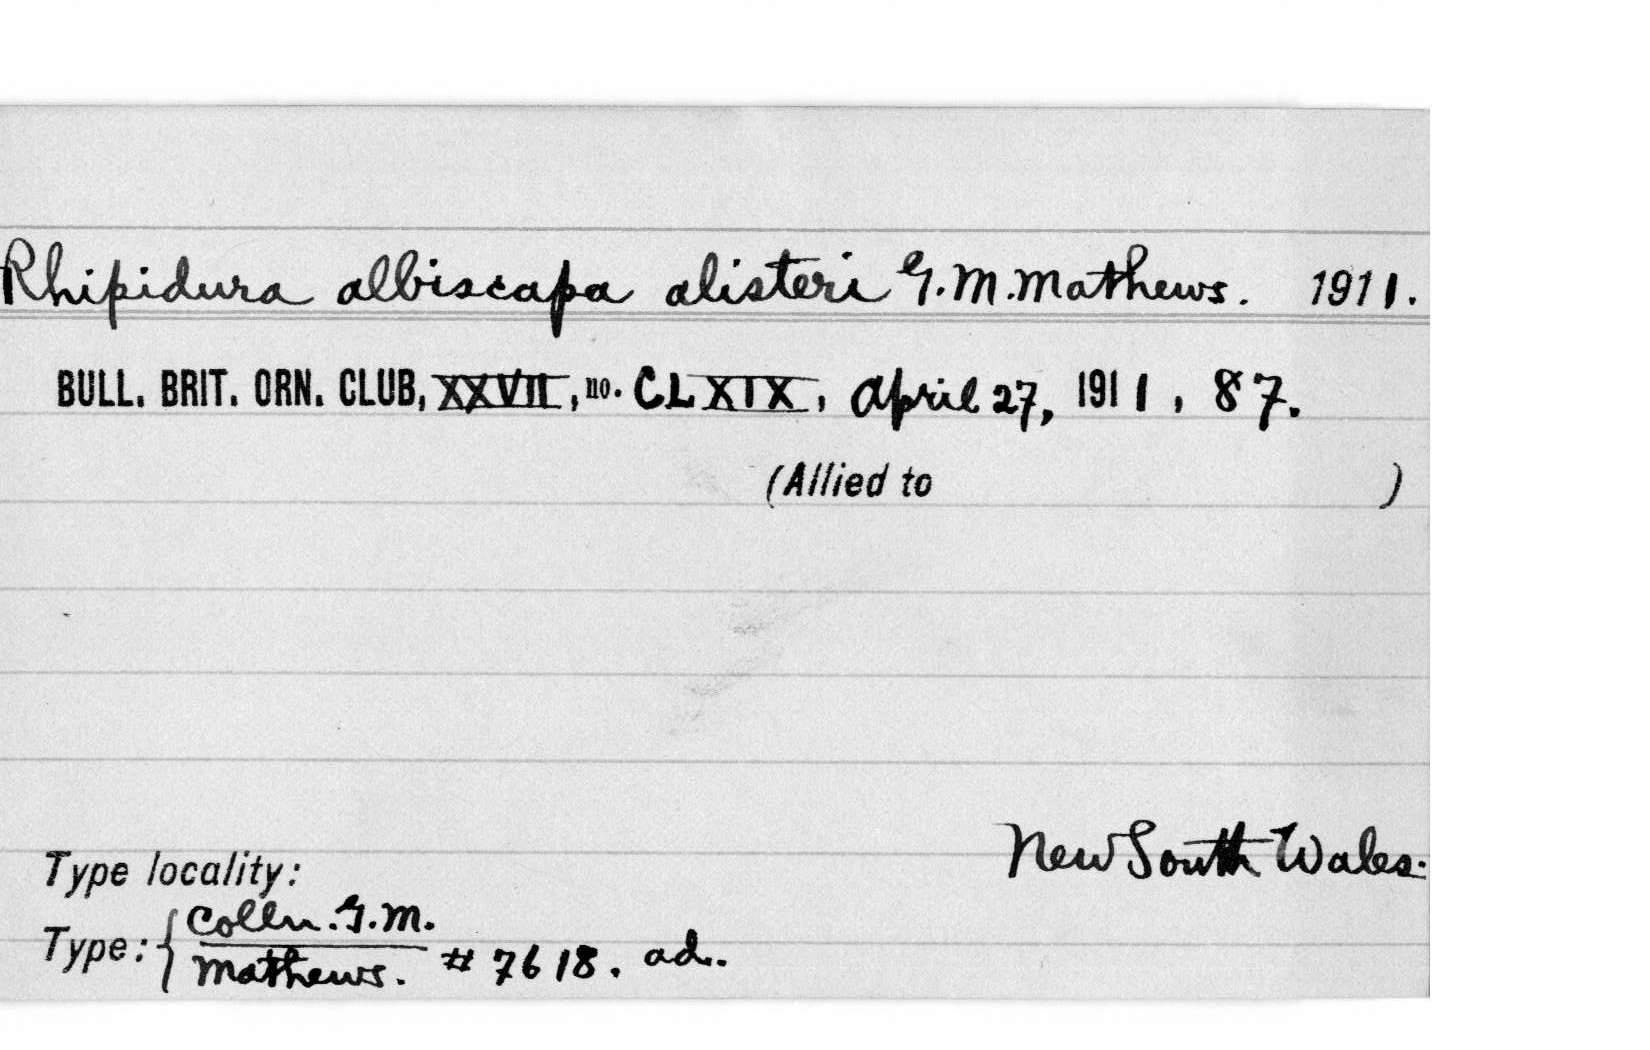 Rhipidura albiscapa alisteri G.M.Mathews. 1911.
BULL. BRIT. ORN. CLUB, XXVII, no. CLXIX, April 27, 1911, 87.
(Allied to )
New South Wales.
Type locality:
Type: { Colln. G.M. Mathews. # 7618. ad.